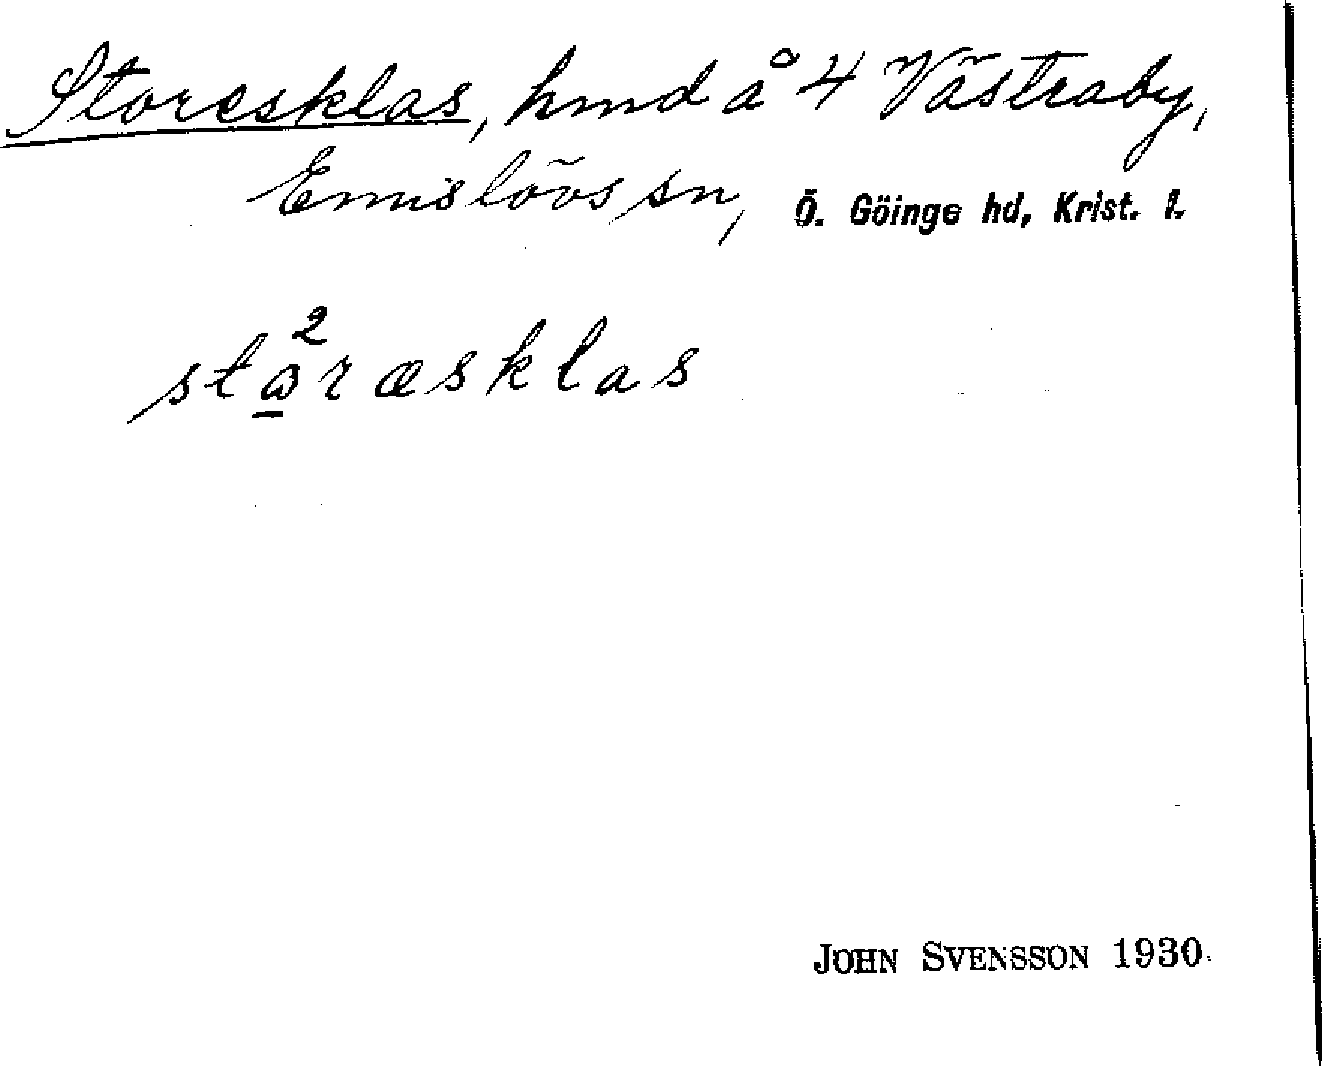 Storesklas, hmd å 4 Västraby,
Emislövs sn, Ö. Göinge hd, Krist. l.
stωræsklas
2
JOHN SVENSSON 1930.